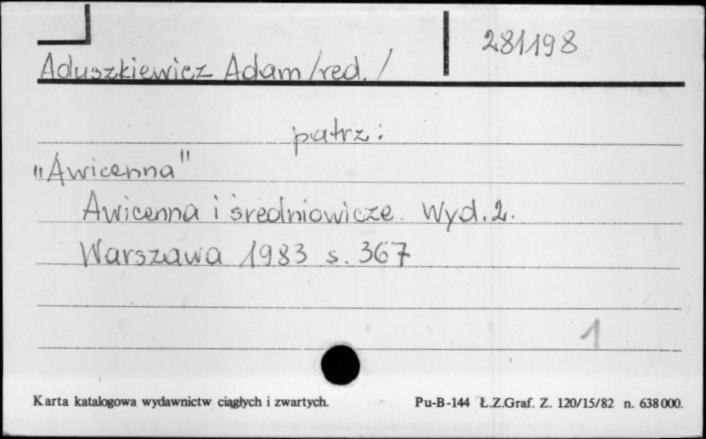 281198
Aduszkiewicz Adam /red./
patrz:
"Awicenna"
Awicenna i średniowicze. Wyd. 2.
Warszawa 1983 s. 367
1
Karta katalogowa wydawnictw ciągłych i zwartych.
Pu-B-144 Ł.Z.Graf. Z. 120/15/82 n. 638000.